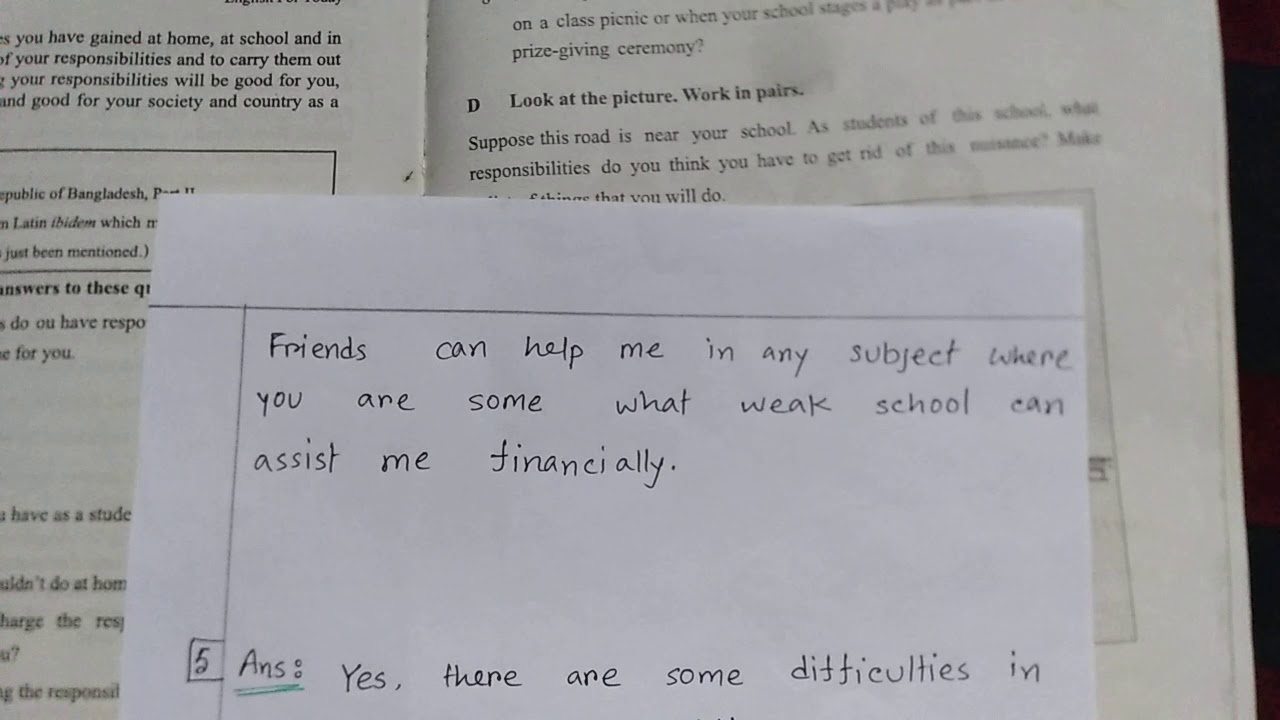 English For Today
es you have gained at home, at school and in
of your responsibilities and to carry them out
g your responsibilities will be good for you,
and good for your society and country as a
epublic of Bangladesh, Part II
n Latin ibidem which m
just been mentioned.)
answers to these qu
s do ou have respo
e for you.
u have as a stude
uldn't do at hom
harge the resp
u?
ng the responsil
on a class picnic or when your school stages a play as part
prize-giving ceremony?
D Look at the picture. Work in pairs.
Suppose this road is near your school. As students of this school, what
responsibilities do you think you have to get rid of this nuisance? Make
of things that you will do.
Friends can help me in any subject where
you are some what weak school can
assist me financially.
5 Ans: Yes, there are some difficulties in